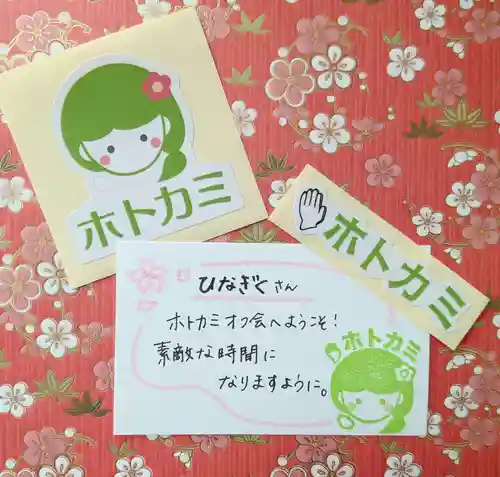 ホトカミ
ホトカミ
ひなぎくさん
ホトカミオフ会へようこそ!
素敵な時間に
なりますように。
ホトカミ